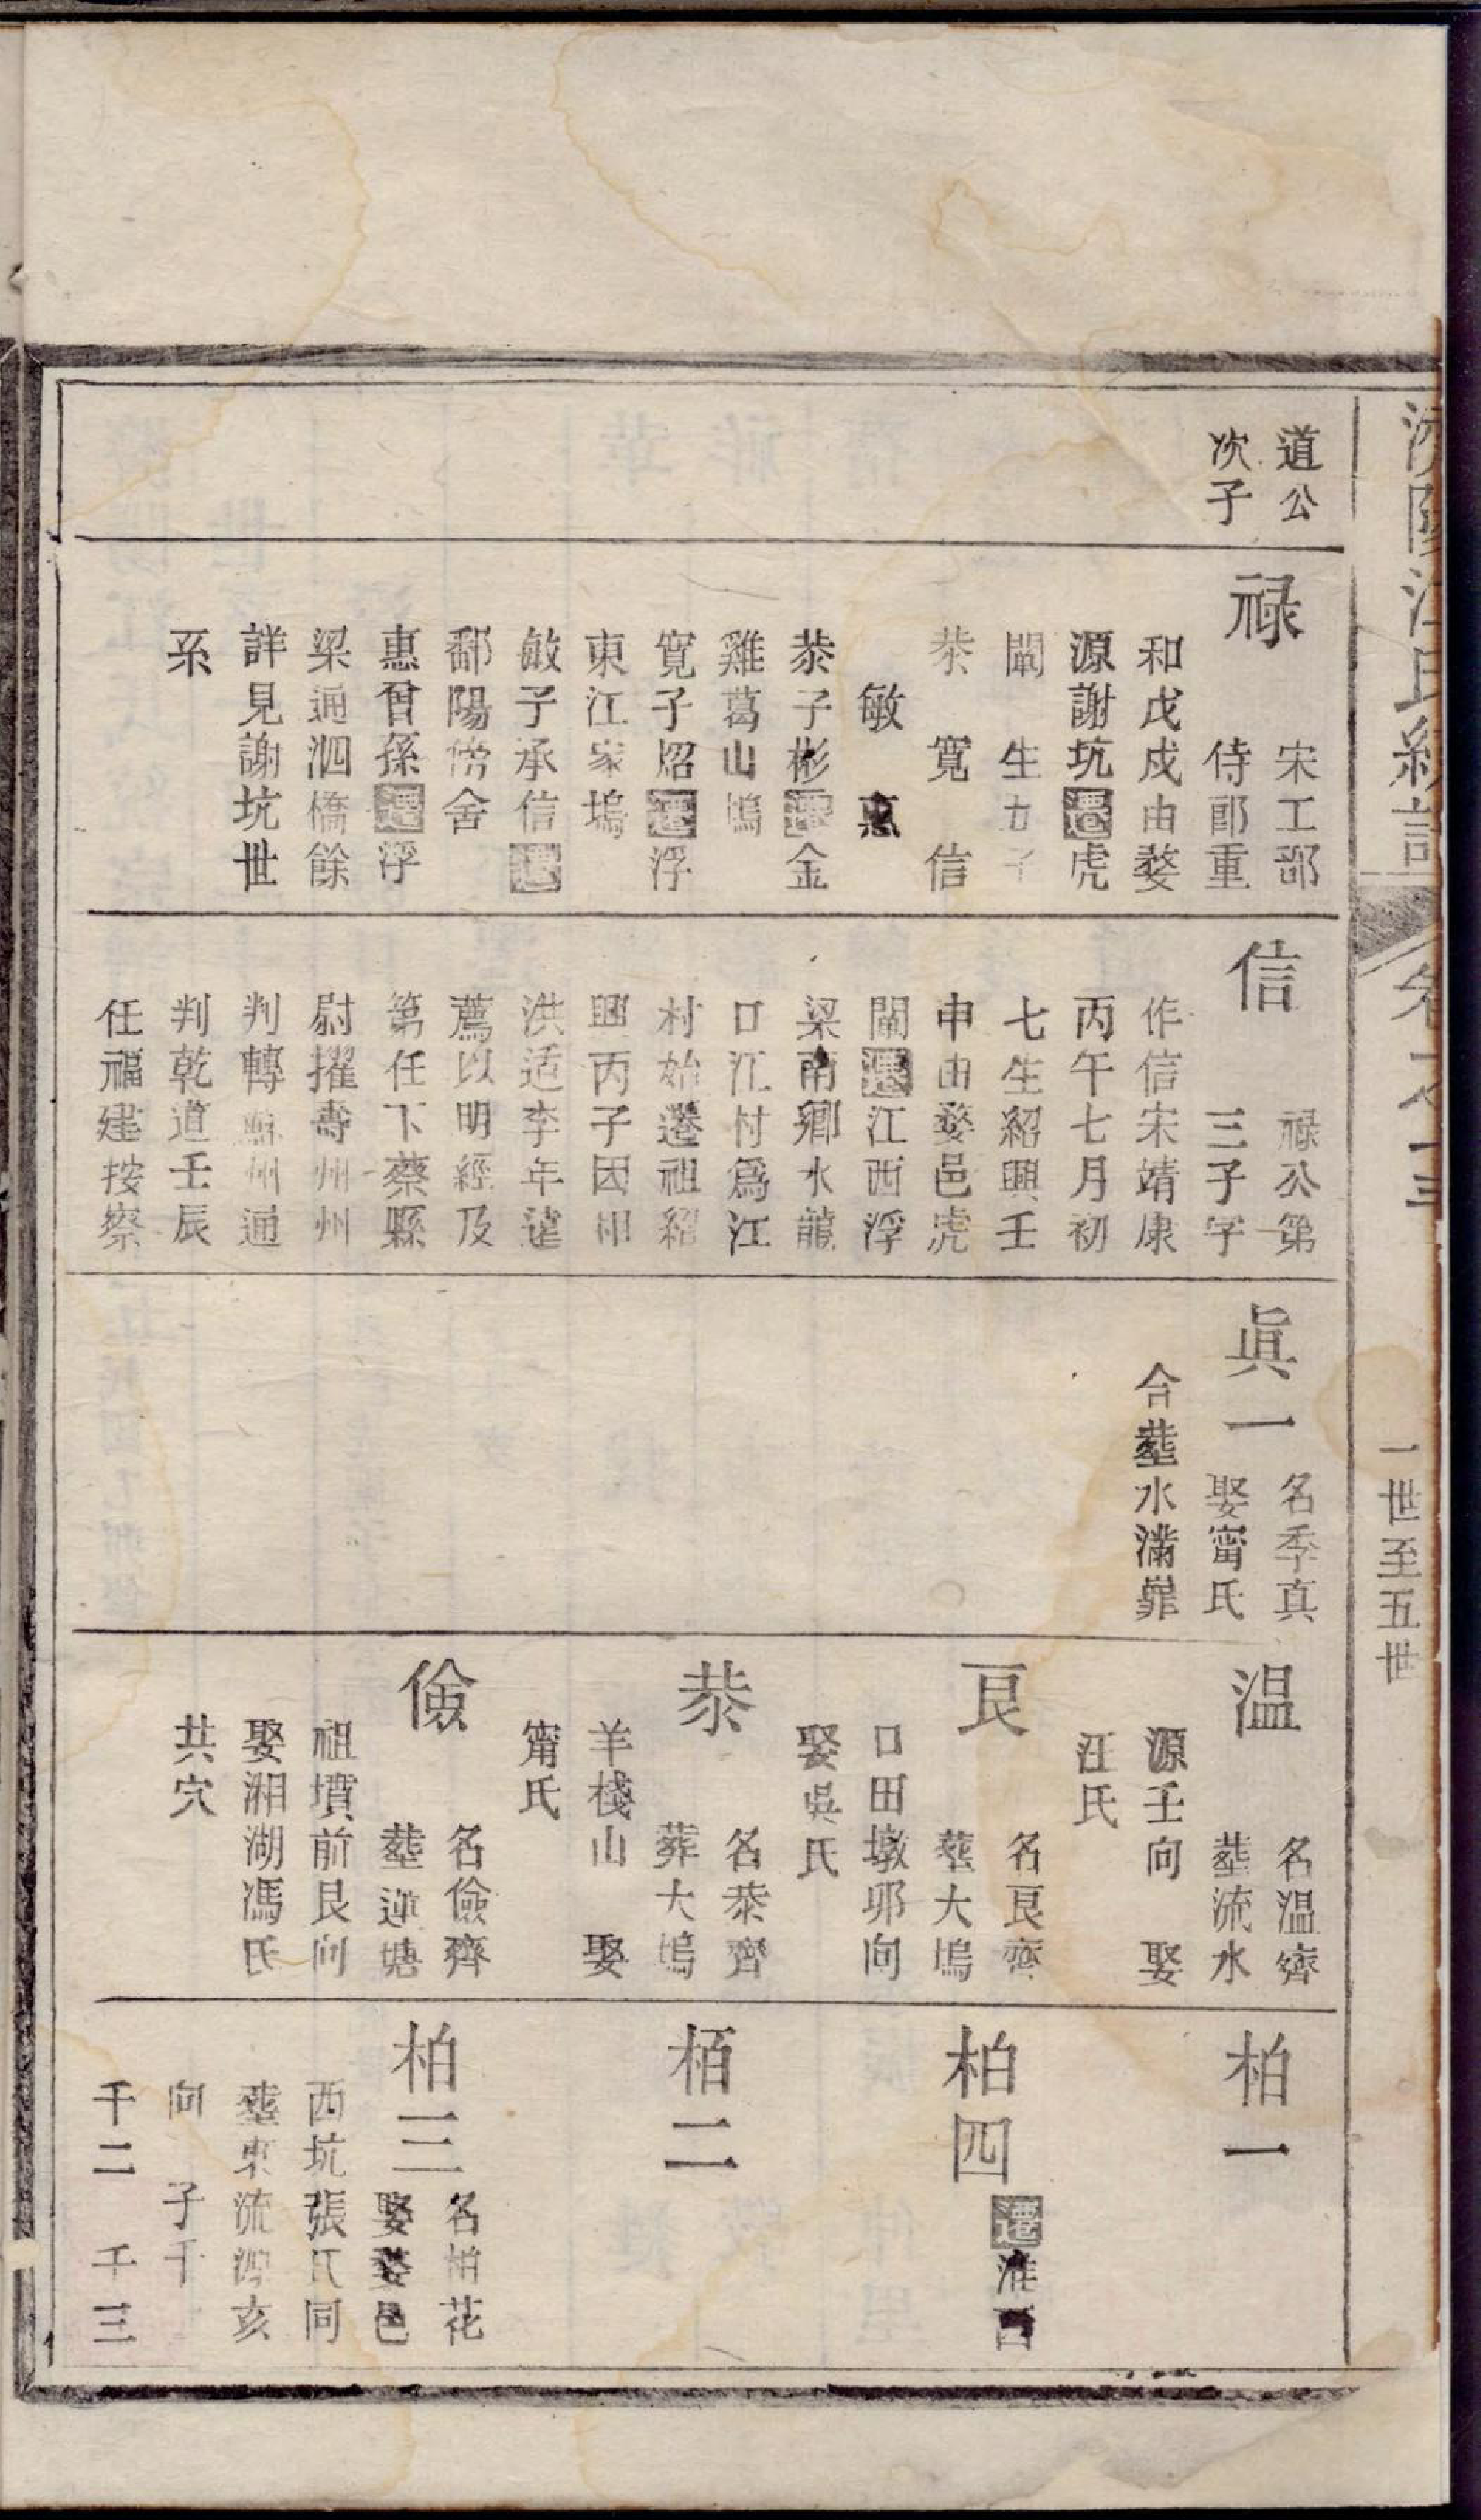 濟陽江氏統譜
卷之十三
一世至五世
道公
次子
祿
宋工部
侍郎重
和戊戍由婺
源謝坑遷虎
闈 生五子
恭 寬 信
敏 惠
恭子彬遷金
雞葛山塢
寬子炤遷浮
東江家塢
敏子承信遷
鄱陽滂舍
惠曾孫遷浮
梁通泗橋餘
詳見謝坑世
系
信
祿公第
三子字
作信宋靖康
丙午七月初
七生紹興壬
申由婺邑虎
闈遷江西浮
梁南鄉水龍
口江村爲江
村始遷祖紹
興丙子因
洪适李年
薦以明經及
第任下蔡縣
尉擢壽州州
判轉蘇州通
判乾道壬辰
任福建按察
眞一
名季真
娶甯氏
合塟水滿
温
名温齊
塟流水
源壬向 娶
汪氏
良
名良齊
塟大塢
口田墩夘向
娶吳氏
恭
名恭齊
葬大塢
羊棧山 娶
甯氏
儉
名儉齊
塟逆塘
祖墳前艮向
娶湘湖馮氏
共穴
柏一
柏四
遷淮西
栢二
柏三
名柏花
娶婺邑
西坑張氏同
塟東流源亥
向 子千一
千二 千三